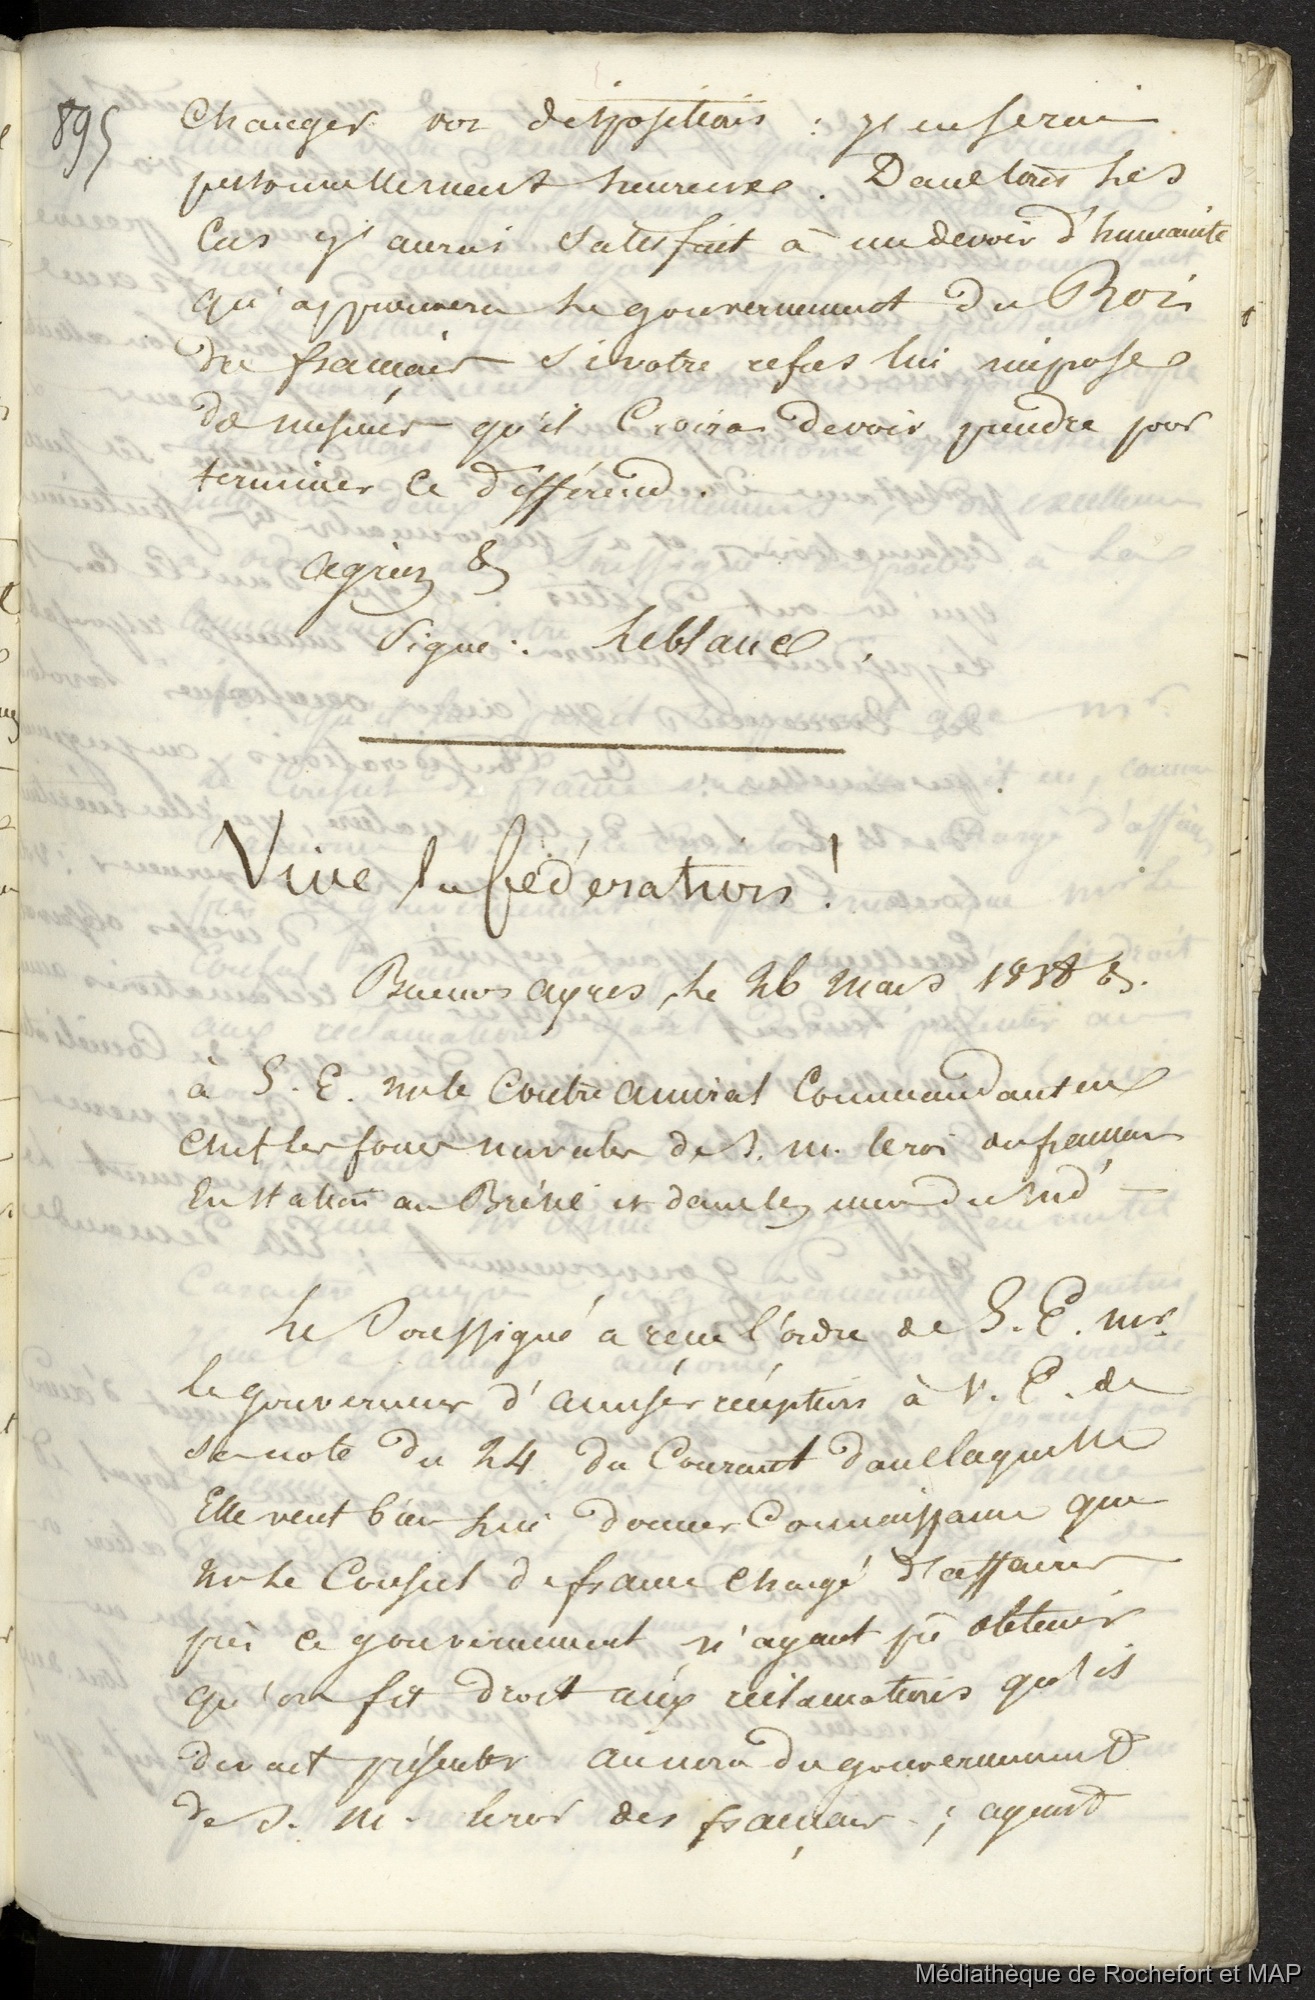 895
Changer vos dispositions : j'en serai
personnellement heureux. Dans tous les
Cas j'aurai satisfait à un devoir d'humanité
qu'approuvera le gouvernement du Roi
des français si votre refus lui impose
de mesures qu'il Croira devoir prendre pour
terminer ce différend.
agréez &
Signé : Leblanc.
Vive la fédération !
Buenos ayres, le 26 Mars 1838 &.
à S. E. mr le Contre amiral Commandant en
Chef les forces navales de S. m. le roi des français
En station au Brésil et dans les mers du sud
Le Soussigné a reçu l'ordre de S. E. mr.
le gouverneur d'accuser réception à V. E. de
sa note du 24 du Courant dans laquelle
Elle veut bien lui donner Connaissance que
mr le Consul de france chargé d'affaires
près ce gouvernement n'ayant pû obtenir
qu'on fit droit aux réclamations qu'il
devait présenter au nom du gouvernement
de S. M. le roi des français ; ayant
Médiathèque de Rochefort et MAP